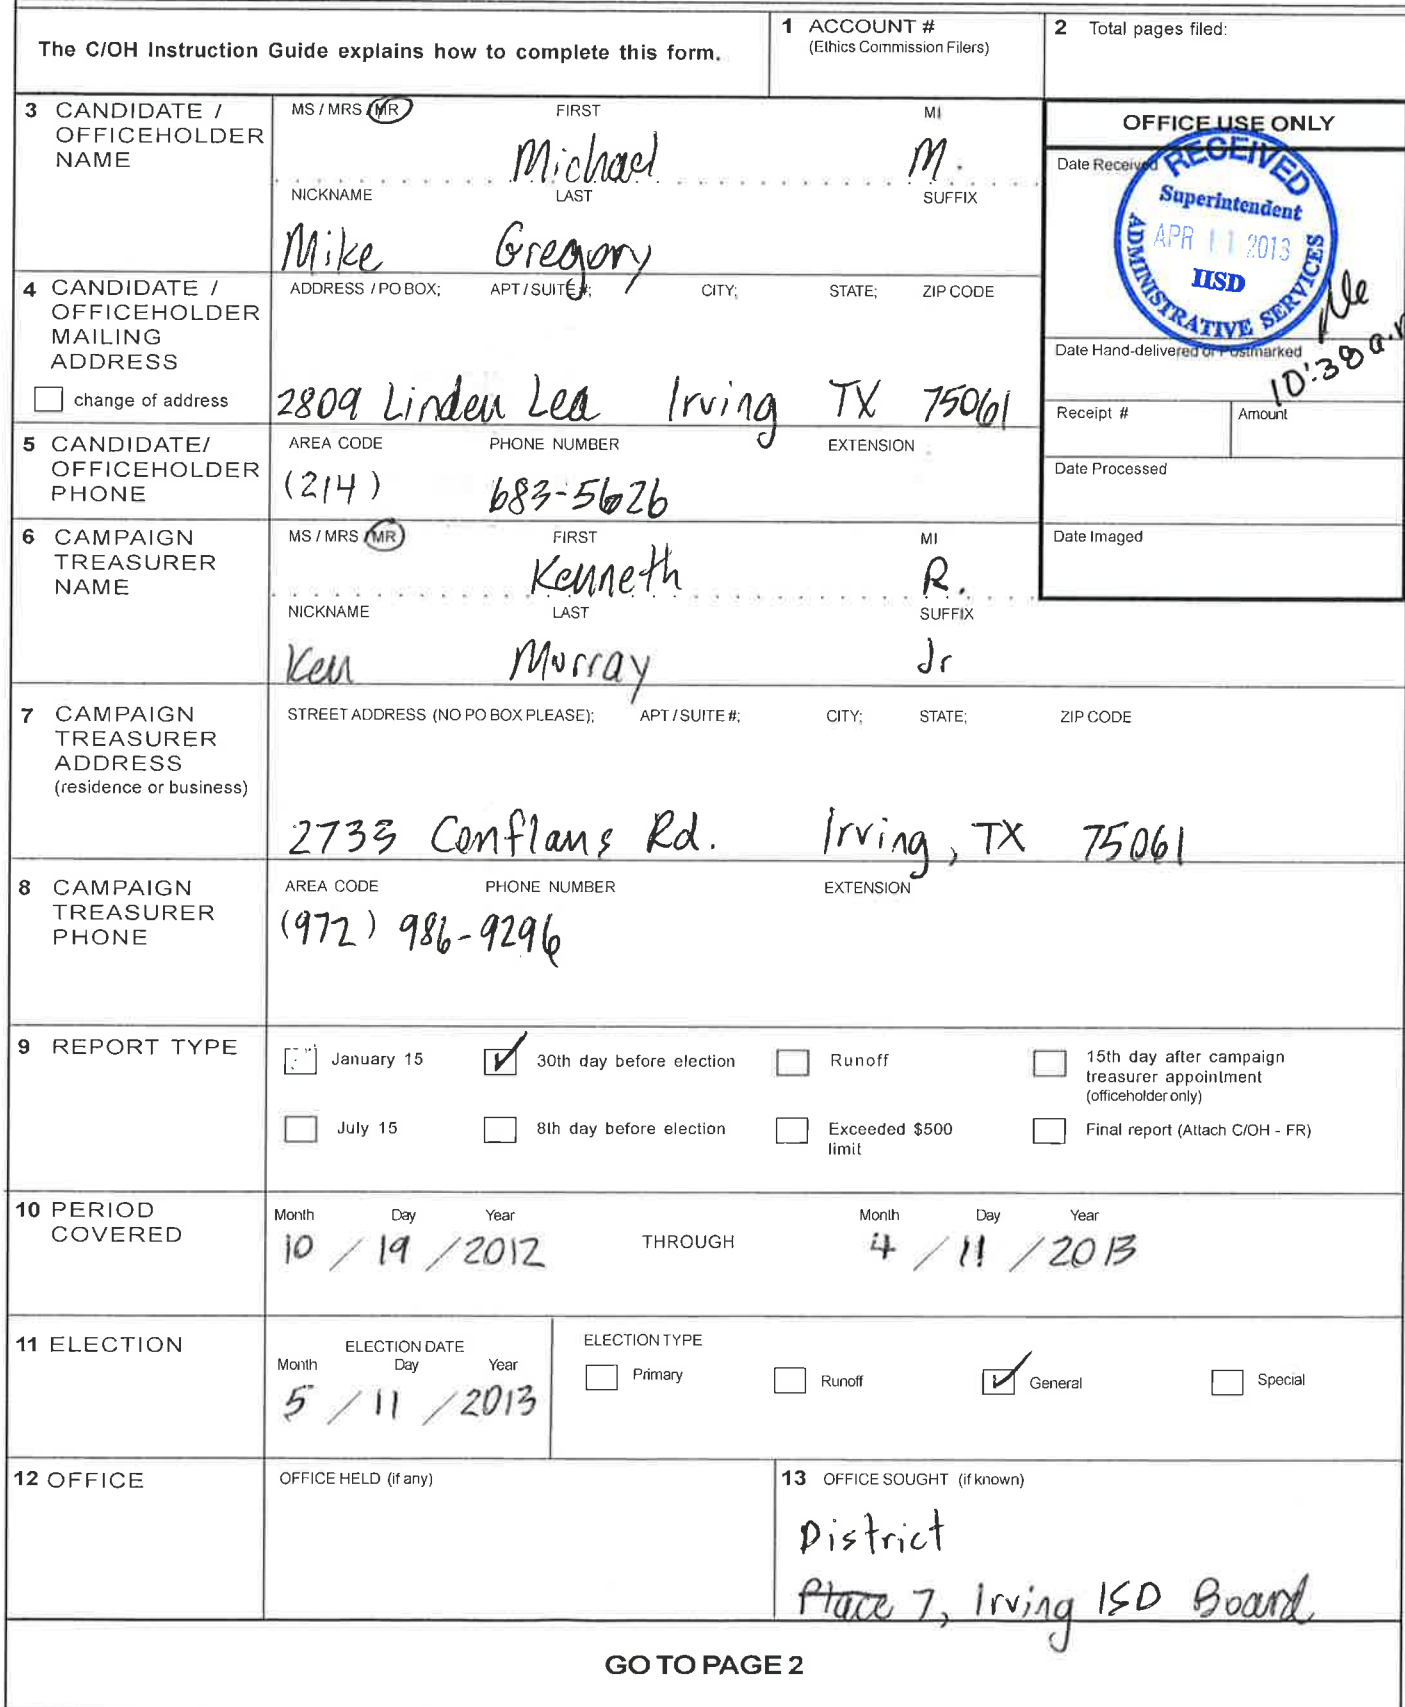 The C/OH Instruction Guide explains how to complete this form.
1 ACCOUNT #
(Ethics Commission Filers)
2 Total pages filed:
3 CANDIDATE / OFFICEHOLDER NAME
MS / MRS / MR FIRST MI
Michael M.
NICKNAME LAST SUFFIX
Mike Gregory
OFFICE USE ONLY
Date Received
RECEIVED
Superintendent
APR 11 2013
IISD
ADMINISTRATIVE SERVICES
Date Hand-delivered or Postmarked
10:38 a.m
Receipt # Amount
Date Processed
Date Imaged
4 CANDIDATE / OFFICEHOLDER MAILING ADDRESS
change of address
ADDRESS / PO BOX; APT / SUITE #; CITY; STATE; ZIP CODE
2809 Linden Lea Irving TX 75061
5 CANDIDATE/ OFFICEHOLDER PHONE
AREA CODE PHONE NUMBER EXTENSION
(214) 683-5626
6 CAMPAIGN TREASURER NAME
MS / MRS / MR FIRST MI
Kenneth R.
NICKNAME LAST SUFFIX
Ken Murray Jr
7 CAMPAIGN TREASURER ADDRESS
(residence or business)
STREET ADDRESS (NO PO BOX PLEASE); APT / SUITE #; CITY; STATE; ZIP CODE
2733 Conflans Rd. Irving, TX 75061
8 CAMPAIGN TREASURER PHONE
AREA CODE PHONE NUMBER EXTENSION
(972) 986-9296
9 REPORT TYPE
January 15 30th day before election Runoff 15th day after campaign treasurer appointment (officeholder only)
July 15 8th day before election Exceeded $500 limit Final report (Attach C/OH - FR)
10 PERIOD COVERED
Month Day Year Month Day Year
10 / 19 / 2012 THROUGH 4 / 11 / 2013
11 ELECTION
ELECTION DATE
Month Day Year
5 / 11 / 2013
ELECTION TYPE
Primary Runoff General Special
12 OFFICE
OFFICE HELD (if any)
13 OFFICE SOUGHT (if known)
District
Place 7, Irving ISD Board
GO TO PAGE 2